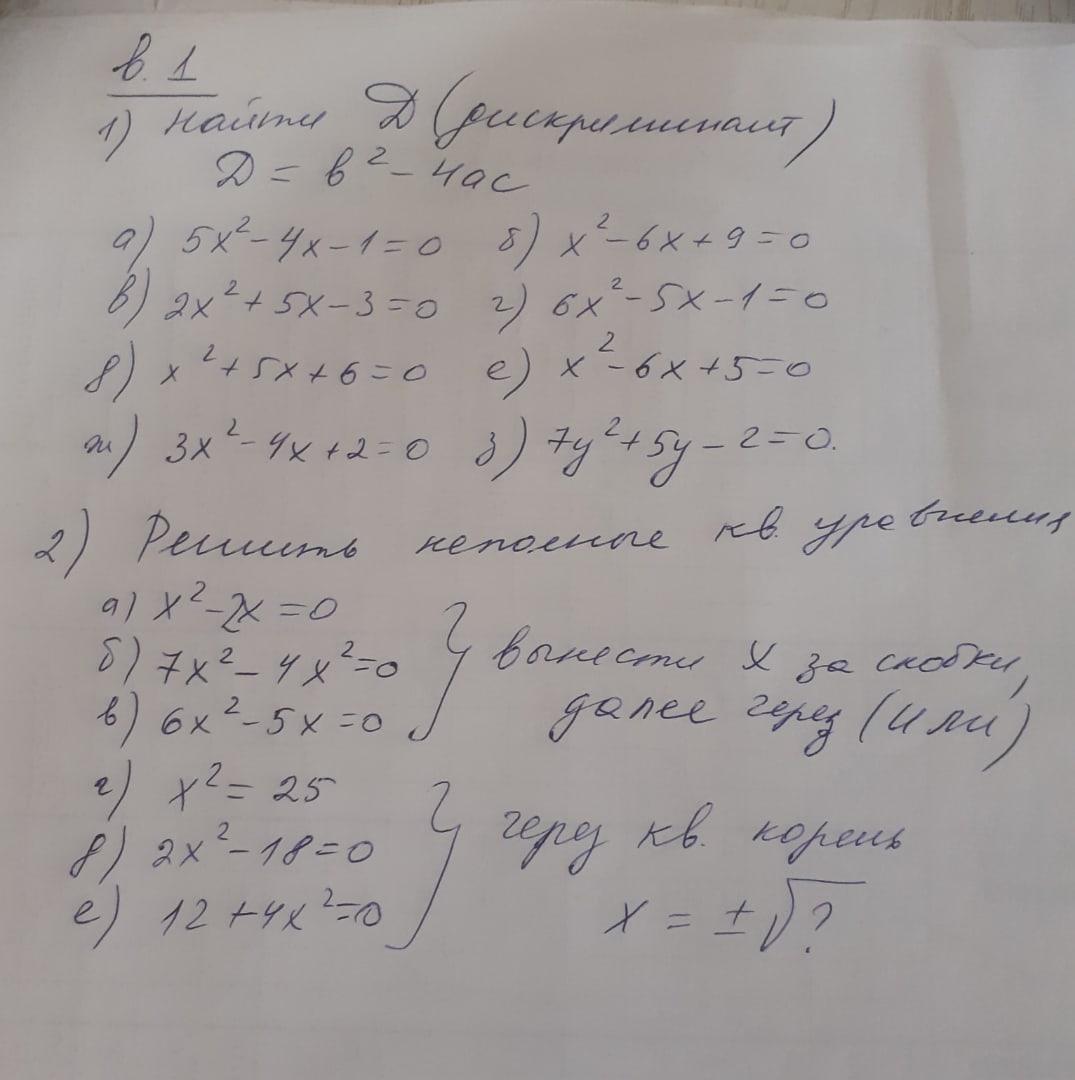 в. 1
1) Найти D (дискриминант)
D = b² - 4ac
а) 5x² - 4x - 1 = 0 б) x² - 6x + 9 = 0
в) 2x² + 5x - 3 = 0 г) 6x² - 5x - 1 = 0
д) x² + 5x + 6 = 0 е) x² - 6x + 5 = 0
ж) 3x² - 4x + 2 = 0 з) 7y² + 5y - 2 = 0.
2) Решить неполные кв. уравнения
а) x² - 2x = 0
б) 7x² - 4x² = 0 } вынести x за скобки,
в) 6x² - 5x = 0 далее через (или)
г) x² = 25
д) 2x² - 18 = 0 } через кв. корень
е) 12 + 4x² = 0 x = ±√?